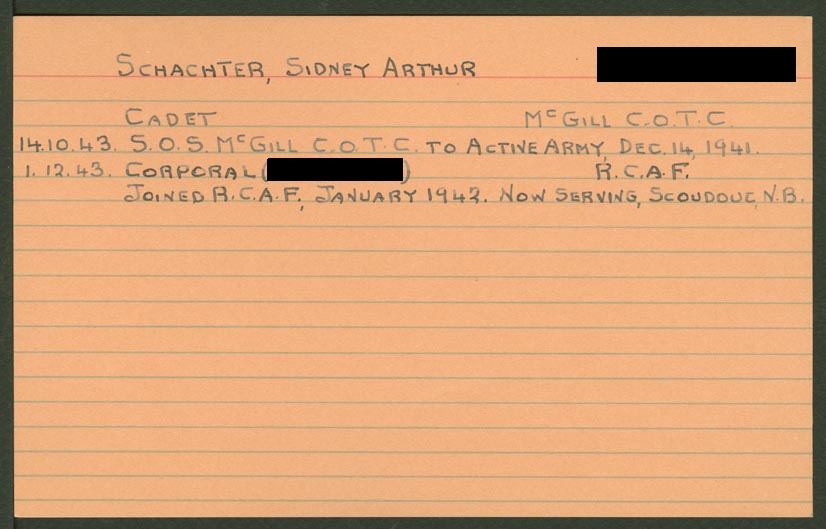 SCHACHTER, SIDNEY ARTHUR
CADET McGILL C.O.T.C.
14.10.43. S.O.S. McGILL C.O.T.C. TO ACTIVE ARMY, DEC. 14, 1941.
1.12.43. CORPORAL ( ) R.C.A.F.
JOINED R.C.A.F., JANUARY 1942. NOW SERVING, SCOUDOUC, N.B.